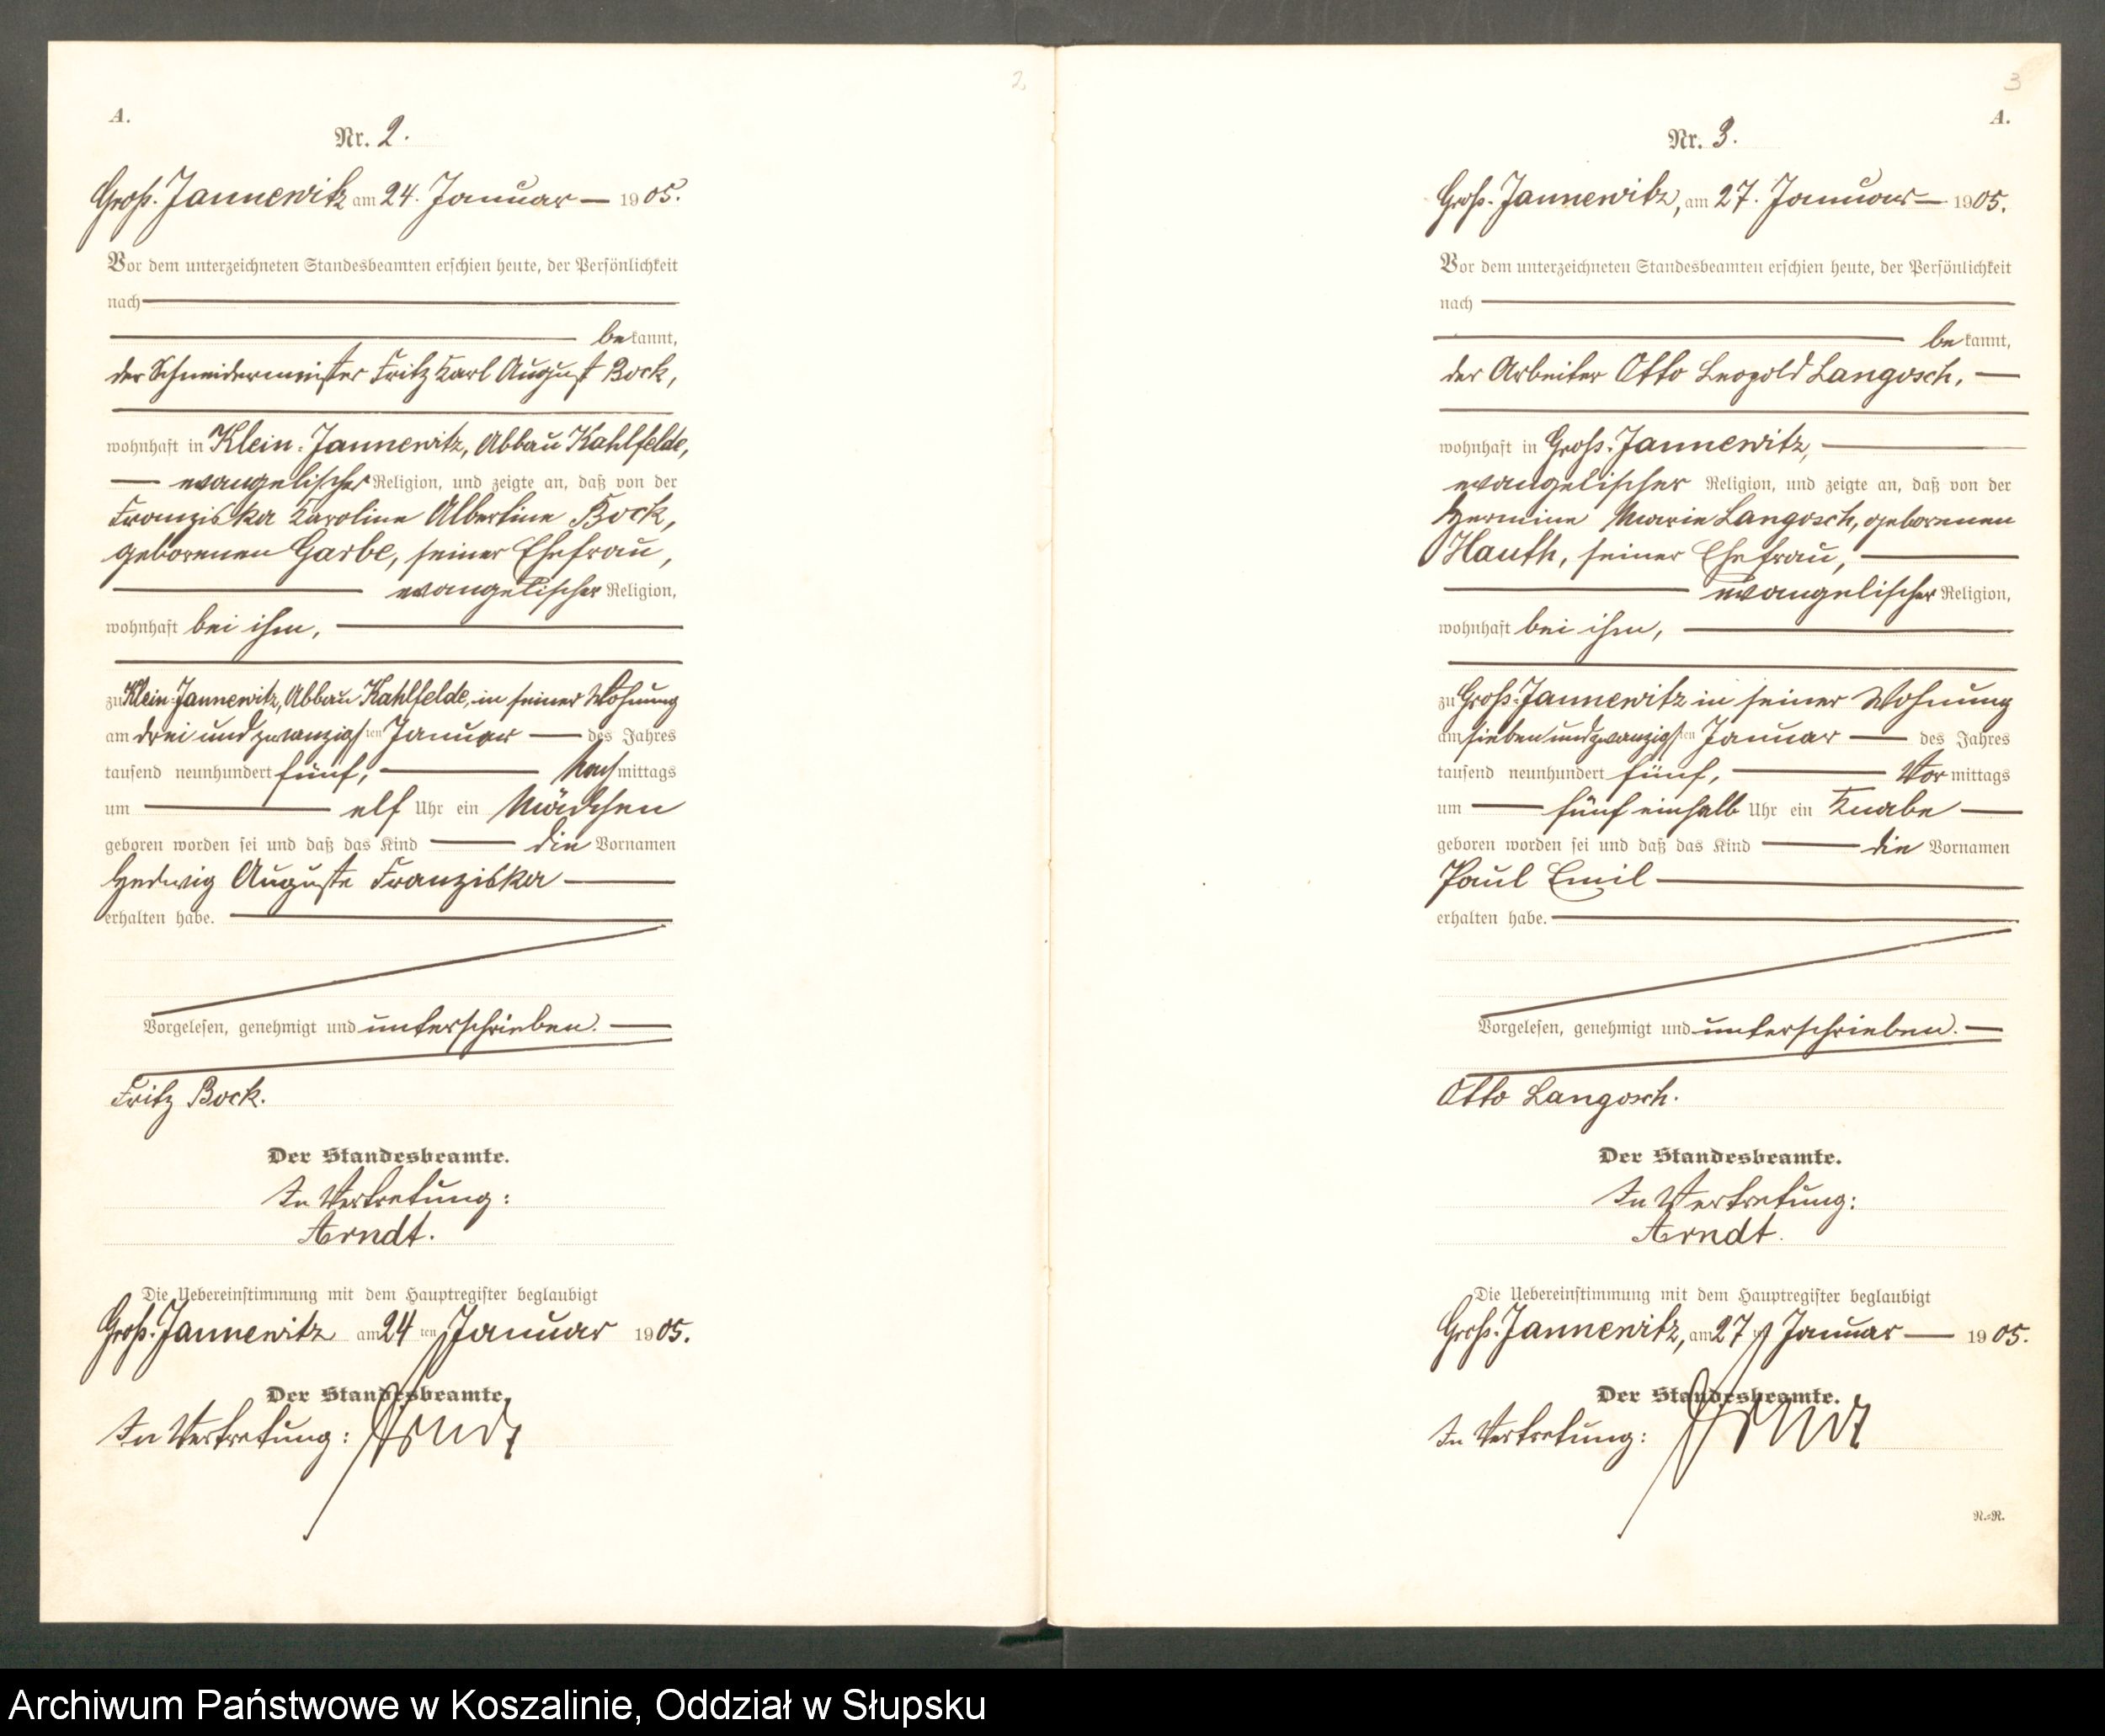 2.
A.
Nr. 2.
Groß-Jannewitz am 24. Januar 1905.
Vor dem unterzeichneten Standesbeamten erschien heute, der Persönlichkeit
nach
bekannt,
der Schneidermeister Fritz Karl August Bock,
wohnhaft in Klein-Jannewitz, Abbau Kahlfelde,
evangelischer Religion, und zeigte an, daß von der
Franziska Karoline Albertine Bock,
geborenen Garbe, seiner Ehefrau,
evangelischer Religion,
wohnhaft bei ihm,
zu Klein-Jannewitz, Abbau Kahlfelde, in seiner Wohnung
am drei und zwanzigsten Januar des Jahres
tausend neunhundert fünf, Nachmittags
um elf Uhr ein Mädchen
geboren worden sei und daß das Kind die Vornamen
Hedwig Auguste Franziska
erhalten habe.
Vorgelesen, genehmigt und unterschrieben.
Fritz Bock.
Der Standesbeamte.
In Vertretung:
Arndt.
Die Uebereinstimmung mit dem Hauptregister beglaubigt
Groß-Jannewitz am 24 ten Januar 1905.
Der Standesbeamte.
In Vertretung: Arndt
3
A.
Nr. 3.
Groß-Jannewitz, am 27. Januar 1905.
Vor dem unterzeichneten Standesbeamten erschien heute, der Persönlichkeit
nach
bekannt,
der Arbeiter Otto Leopold Langosch,
wohnhaft in Groß-Jannewitz,
evangelischer Religion, und zeigte an, daß von der
Hermine Marie Langosch, geborenen
Hauth, seiner Ehefrau,
evangelischer Religion,
wohnhaft bei ihm,
zu Groß-Jannewitz in seiner Wohnung
am sieben und zwanzigsten Januar des Jahres
tausend neunhundert fünf, Vormittags
um fünf einhalb Uhr ein Knabe
geboren worden sei und daß das Kind die Vornamen
Paul Emil
erhalten habe.
Vorgelesen, genehmigt und unterschrieben.
Otto Langosch.
Der Standesbeamte.
In Vertretung:
Arndt.
Die Uebereinstimmung mit dem Hauptregister beglaubigt
Groß-Jannewitz, am 27 ten Januar 1905.
Der Standesbeamte.
In Vertretung: Arndt
R.=R.
Archiwum Państwowe w Koszalinie, Oddział w Słupsku